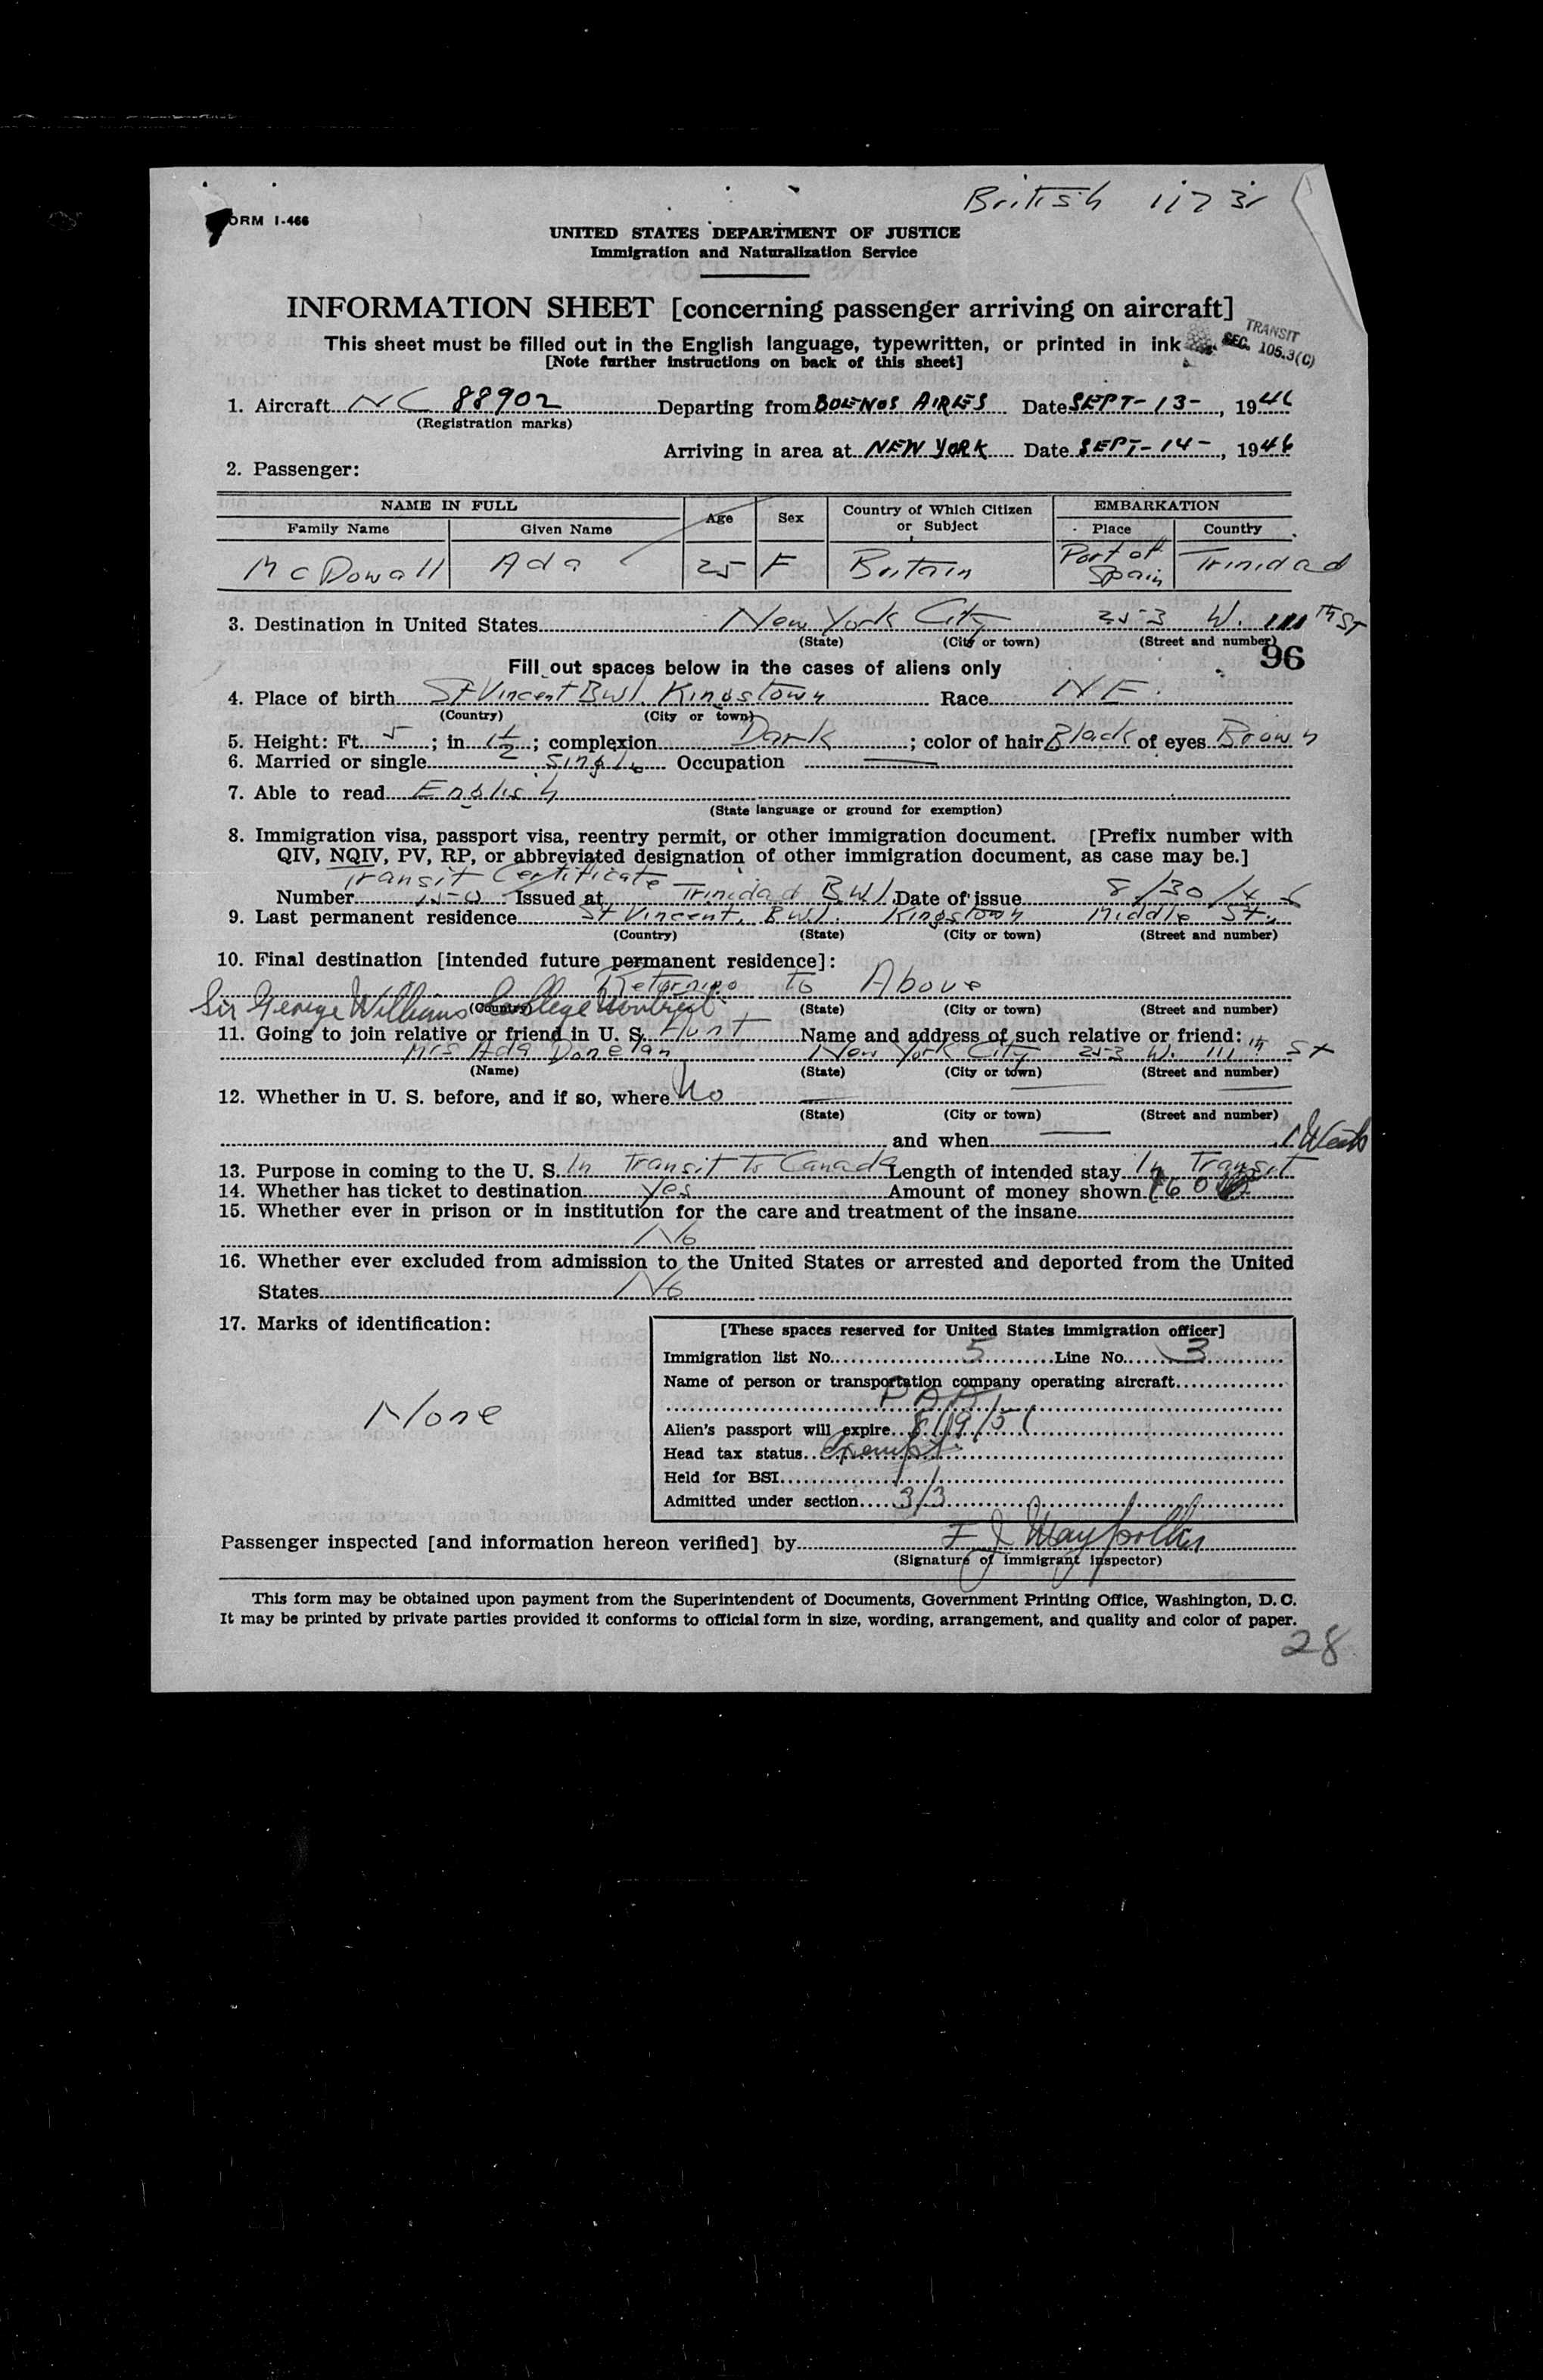 British
FORM I-466
UNITED STATES DEPARTMENT OF JUSTICE
Immigration and Naturalization Service
INFORMATION SHEET [concerning passenger arriving on aircraft]
This sheet must be filled out in the English language, typewritten, or printed in ink
TRANSIT
SEC. 105.3(C)
[Note further instructions on back of this sheet]
1. Aircraft NC 88902 Departing from BUENOS AIRES Date SEPT-13-, 1946
(Registration marks)
Arriving in area at NEW YORK Date SEPT-14-, 1946
2. Passenger:
NAME IN FULL Age Sex Country of Which Citizen or Subject EMBARKATION
Family Name Given Name Place Country
McDowall Ada 25 F Britain Port of Spain Trinidad
3. Destination in United States New York City 253 W. 111 th ST
(State) (City or town) (Street and number)
96
Fill out spaces below in the cases of aliens only
4. Place of birth St Vincent BWI. Kingstown Race NE.
(Country) (City or town)
5. Height: Ft. 5; in 1 1/2; complexion Dark; color of hair Black of eyes Brown
6. Married or single Single Occupation —
7. Able to read English
(State language or ground for exemption)
8. Immigration visa, passport visa, reentry permit, or other immigration document. [Prefix number with
QIV, NQIV, PV, RP, or abbreviated designation of other immigration document, as case may be.]
Transit Certificate
Number Issued at Trinidad BWI. Date of issue 8/30/46
9. Last permanent residence St Vincent, BWI. Kingstown Middle St.
(Country) (State) (City or town) (Street and number)
10. Final destination [intended future permanent residence]:
Returning to Above
Sir George Williams College Montreal
(Country) (State) (City or town) (Street and number)
11. Going to join relative or friend in U. S. Name and address of such relative or friend:
Mrs Ada Donelan New York City 253 W. 111 th St
(Name) (State) (City or town) (Street and number)
12. Whether in U. S. before, and if so, where No —
(State) (City or town) (Street and number)
and when —
13. Purpose in coming to the U. S. In Transit To Canada Length of intended stay In Transit
14. Whether has ticket to destination Yes Amount of money shown
15. Whether ever in prison or in institution for the care and treatment of the insane
No
16. Whether ever excluded from admission to the United States or arrested and deported from the United
States No
17. Marks of identification:
None
[These spaces reserved for United States immigration officer]
Immigration list No. 5 Line No. 3
Name of person or transportation company operating aircraft
PAA
Alien's passport will expire 8/19/51
Head tax status Exempt
Held for BSI
Admitted under section 3/3
Passenger inspected [and information hereon verified] by
(Signature of immigrant inspector)
This form may be obtained upon payment from the Superintendent of Documents, Government Printing Office, Washington, D. C.
It may be printed by private parties provided it conforms to official form in size, wording, arrangement, and quality and color of paper.
28